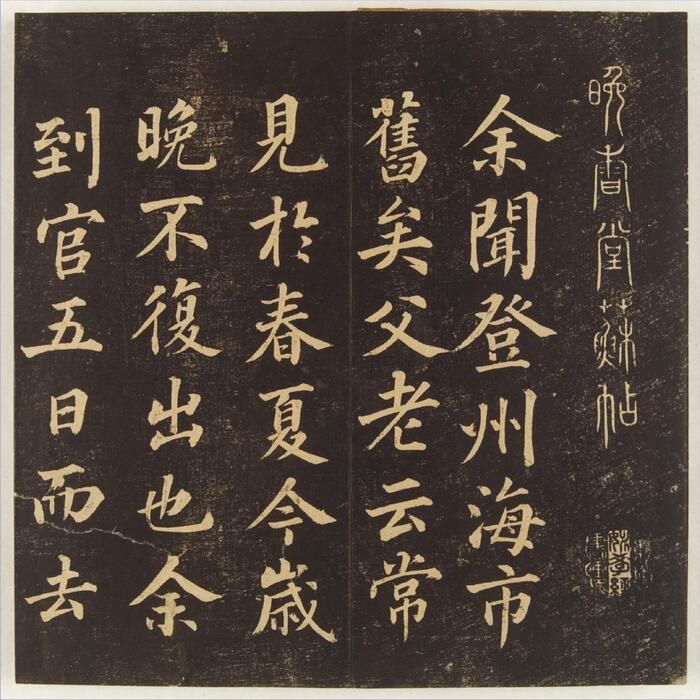 晚香堂蘇帖
余聞登州海市
舊矣父老云常
見於春夏今歲
晚不復出也余
到官五日而去